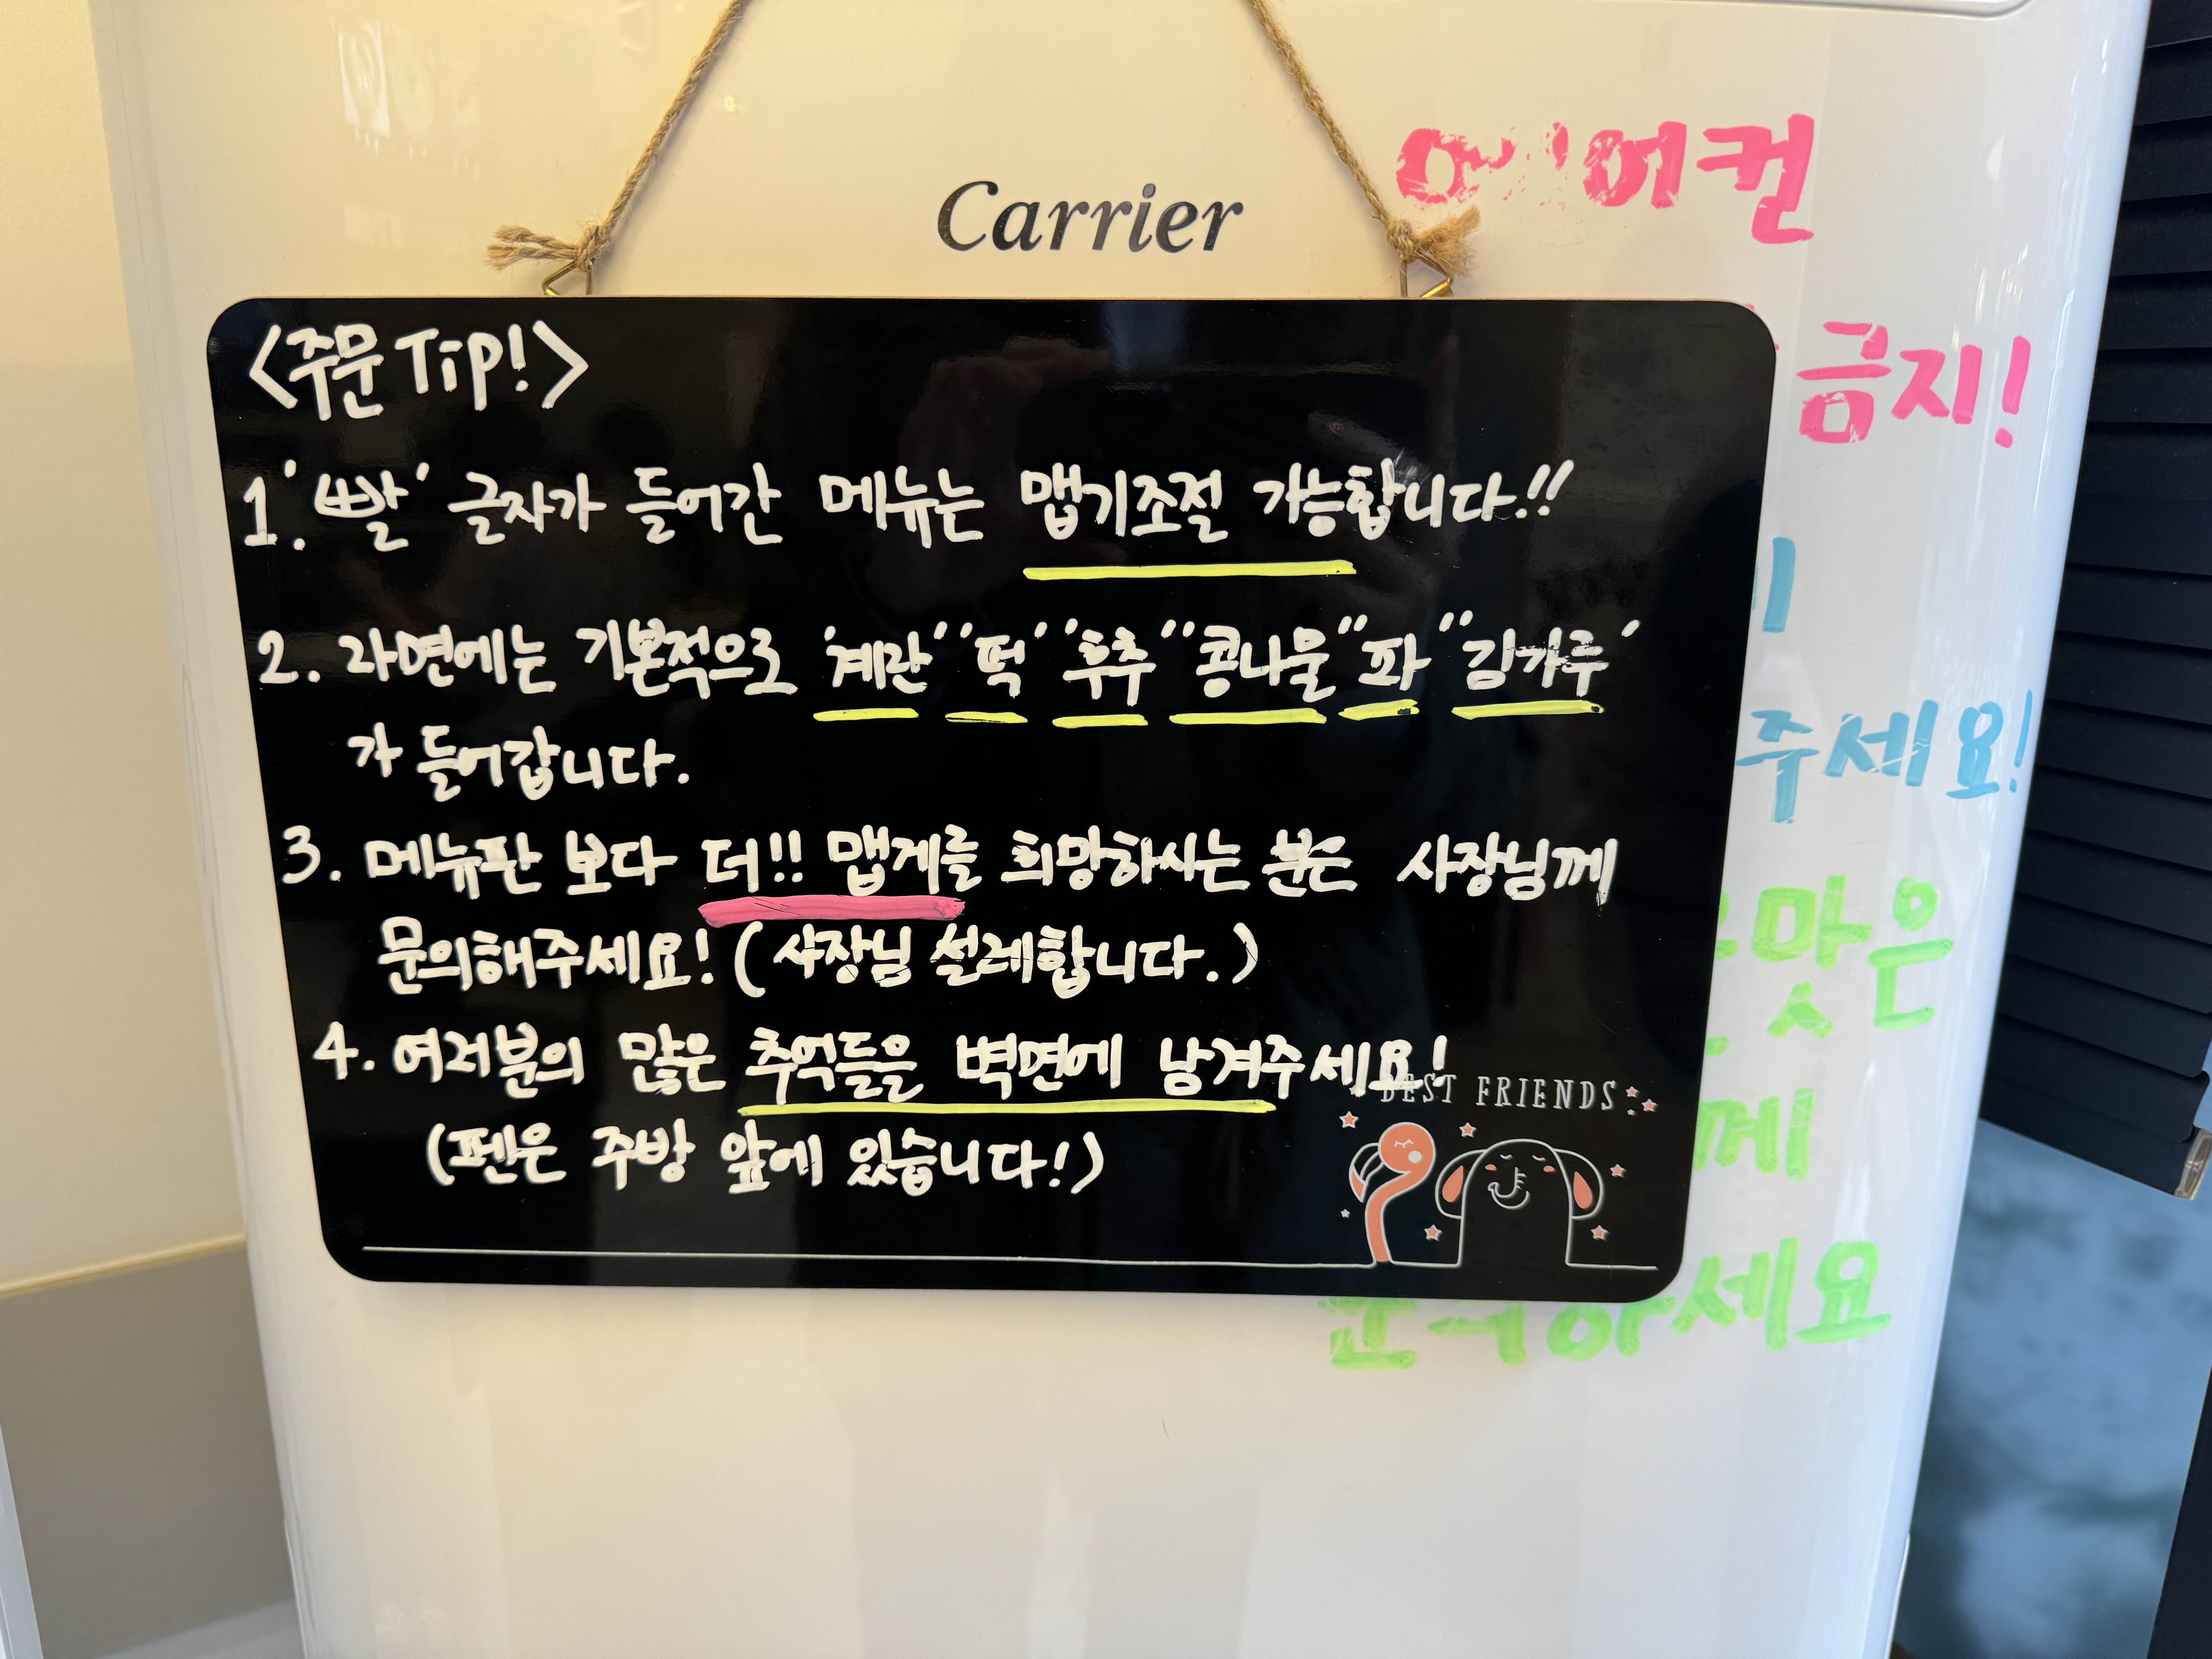 Carrier
에어컨
금지!
<주문 Tip!>
1. '빨' 글자가 들어간 메뉴는 맵기조절 가능합니다.!!
2. 라면에는 기본적으로 '계란' '떡' '후추' '콩나물' '파' '김가루'
가 들어갑니다.
3. 메뉴판 보다 더!! 맵게를 희망하시는 분은 사장님께
문의해주세요! (사장님 설레합니다.)
4. 여러분의 많은 추억들을 벽면에 남겨주세요!
(펜은 주방 앞에 있습니다!)
BEST FRIENDS
주세요!
맞은
께